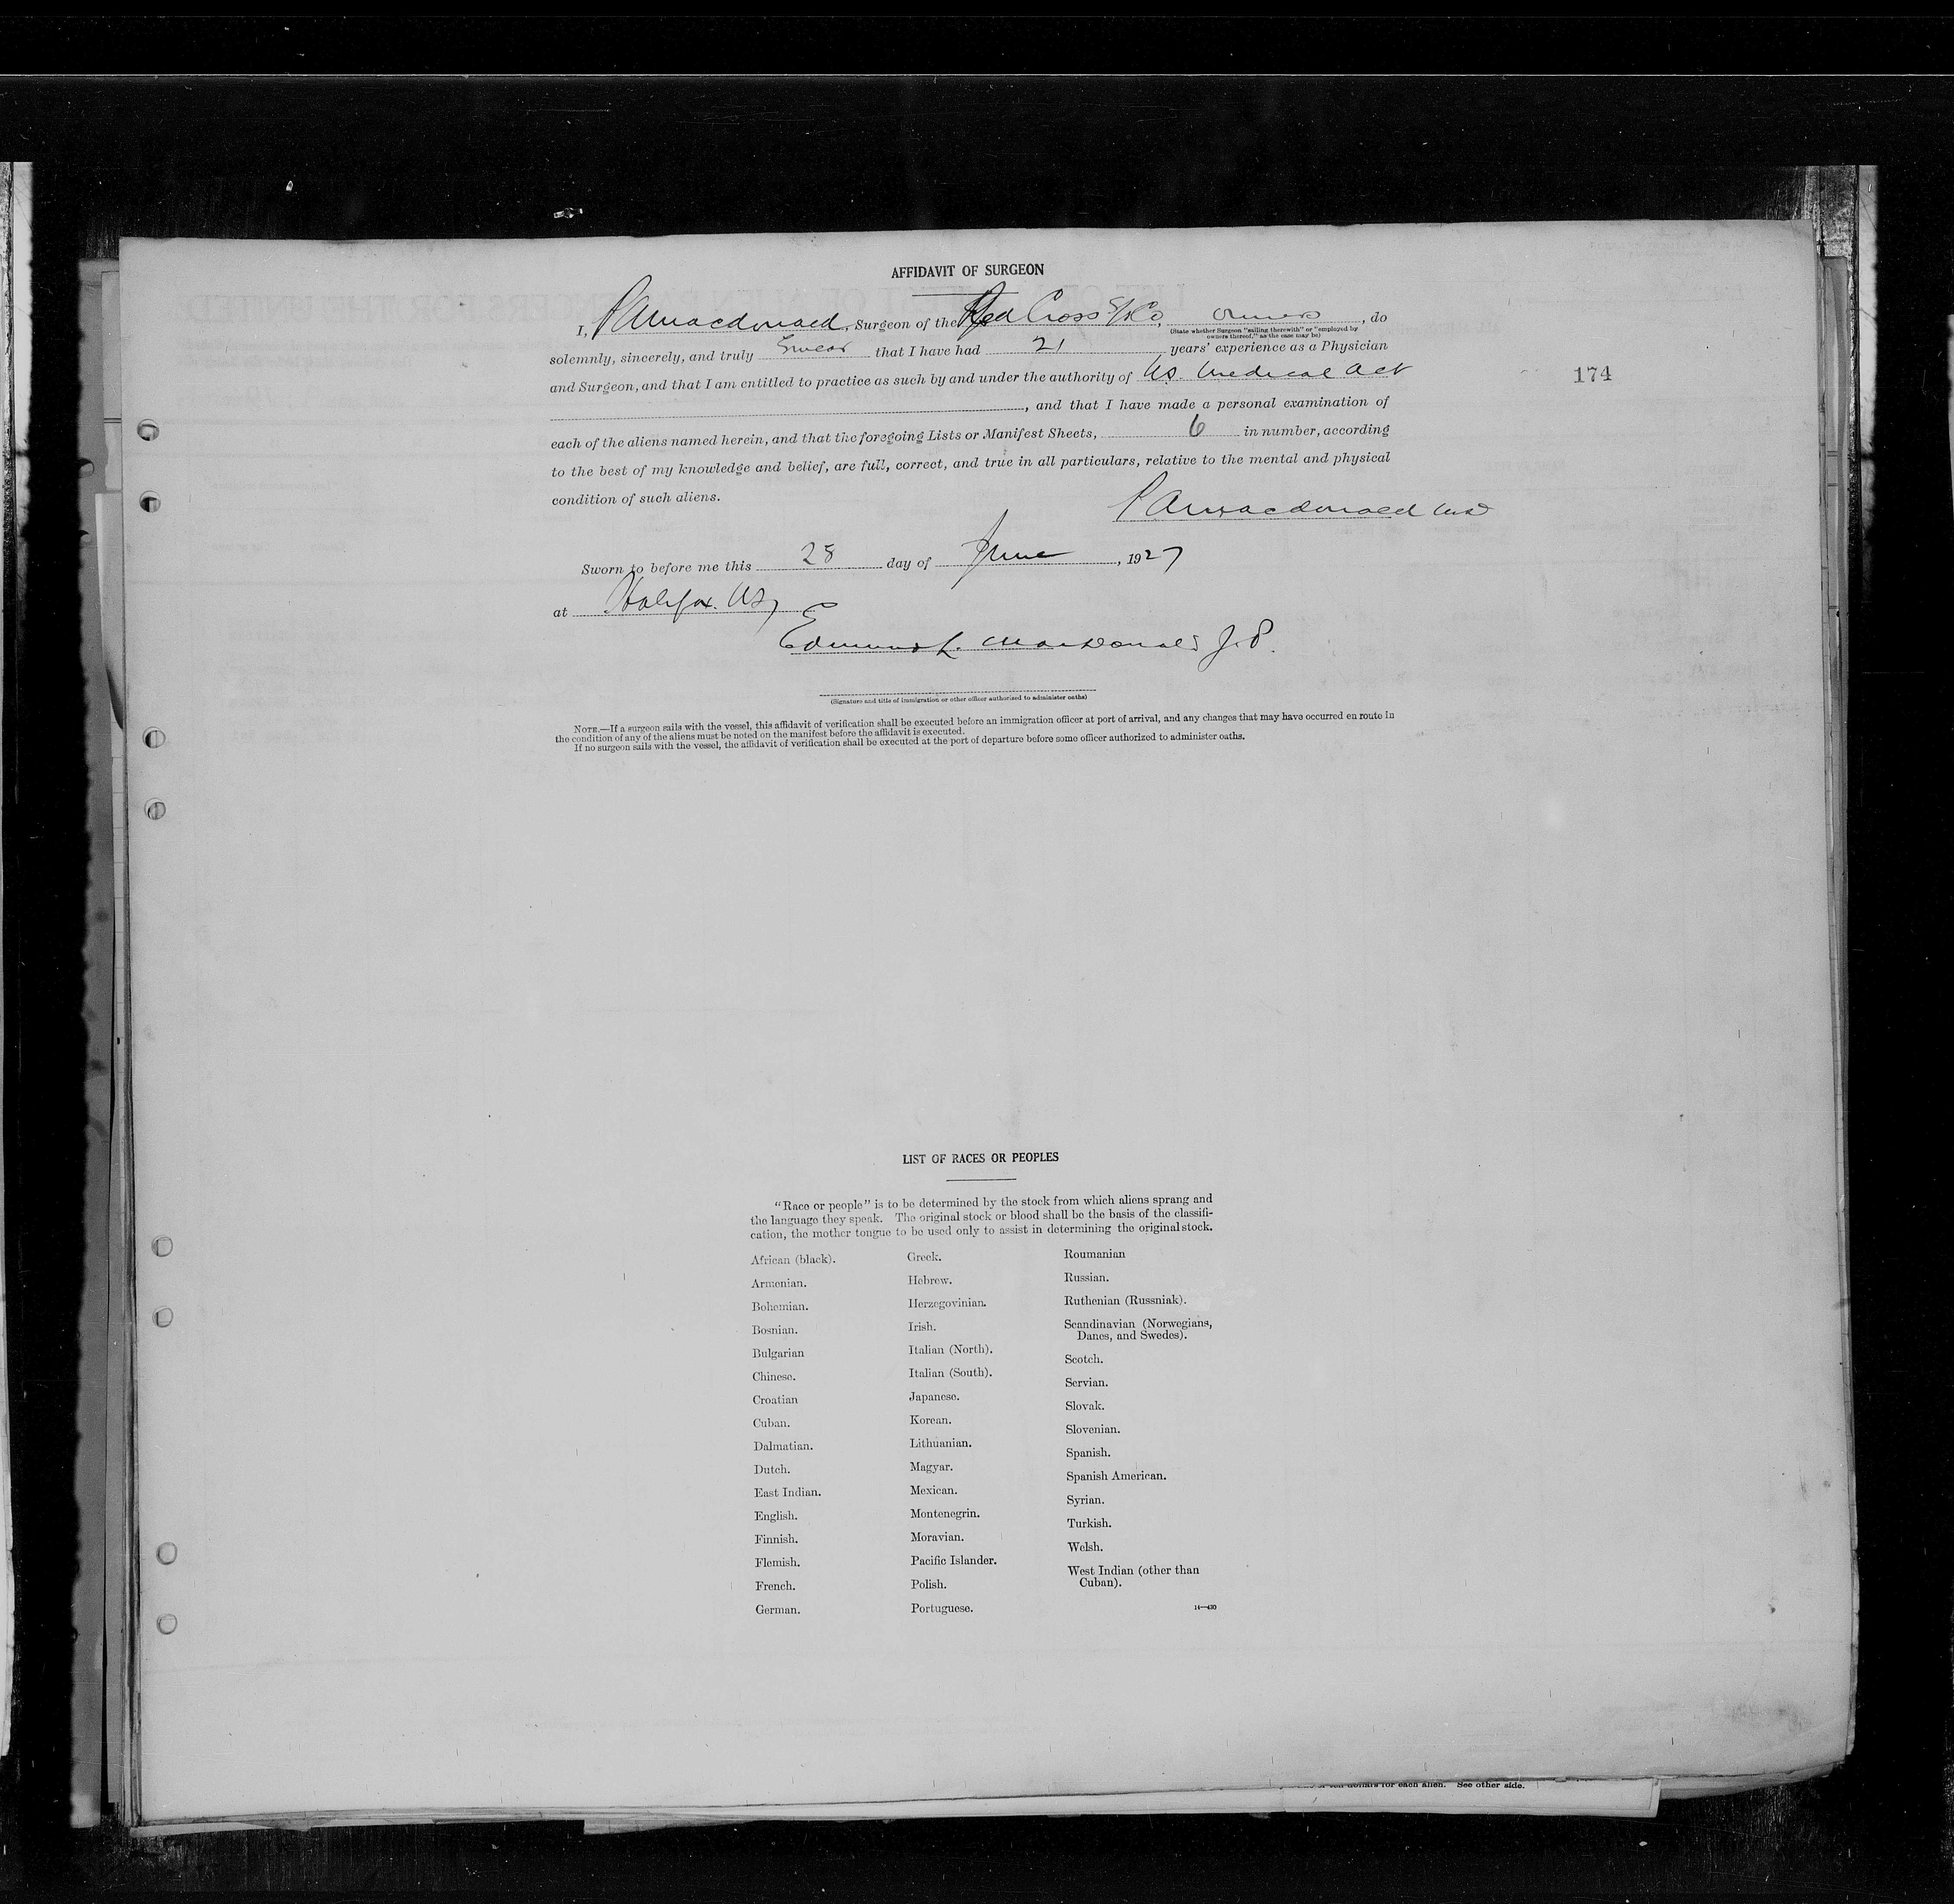 AFFIDAVIT OF SURGEON
I, P A Macdonald, Surgeon of the Red Cross S/S Co, owners, do
(State whether Surgeon "sailing therewith" or "employed by
owners thereof," as the case may be)
solemnly, sincerely, and truly swear that I have had 21 years' experience as a Physician
and Surgeon, and that I am entitled to practice as such by and under the authority of NS. Medical Act
174
, and that I have made a personal examination of
each of the aliens named herein, and that the foregoing Lists or Manifest Sheets, 6 in number, according
to the best of my knowledge and belief, are full, correct, and true in all particulars, relative to the mental and physical
condition of such aliens.
P A Macdonald MD
Sworn to before me this 28 day of June, 1927
at Halifax. NS,
Edmund L. MacDonald J.P.
(Signature and title of immigration or other officer authorized to administer oaths)
NOTE.—If a surgeon sails with the vessel, this affidavit of verification shall be executed before an immigration officer at port of arrival, and any changes that may have occurred en route in
the condition of any of the aliens must be noted on the manifest before the affidavit is executed.
If no surgeon sails with the vessel, the affidavit of verification shall be executed at the port of departure before some officer authorized to administer oaths.
LIST OF RACES OR PEOPLES
"Race or people" is to be determined by the stock from which aliens sprang and
the language they speak. The original stock or blood shall be the basis of the classifi-
cation, the mother tongue to be used only to assist in determining the original stock.
African (black).
Armenian.
Bohemian.
Bosnian.
Bulgarian
Chinese.
Croatian
Cuban.
Dalmatian.
Dutch.
East Indian.
English.
Finnish.
Flemish.
French.
German.
Greek.
Hebrew.
Herzegovinian.
Irish.
Italian (North).
Italian (South).
Japanese.
Korean.
Lithuanian.
Magyar.
Mexican.
Montenegrin.
Moravian.
Pacific Islander.
Polish.
Portuguese.
Roumanian
Russian.
Ruthenian (Russniak).
Scandinavian (Norwegians,
Danes, and Swedes).
Scotch.
Servian.
Slovak.
Slovenian.
Spanish.
Spanish American.
Syrian.
Turkish.
Welsh.
West Indian (other than
Cuban).
14—430
dollars for each alien. See other side.